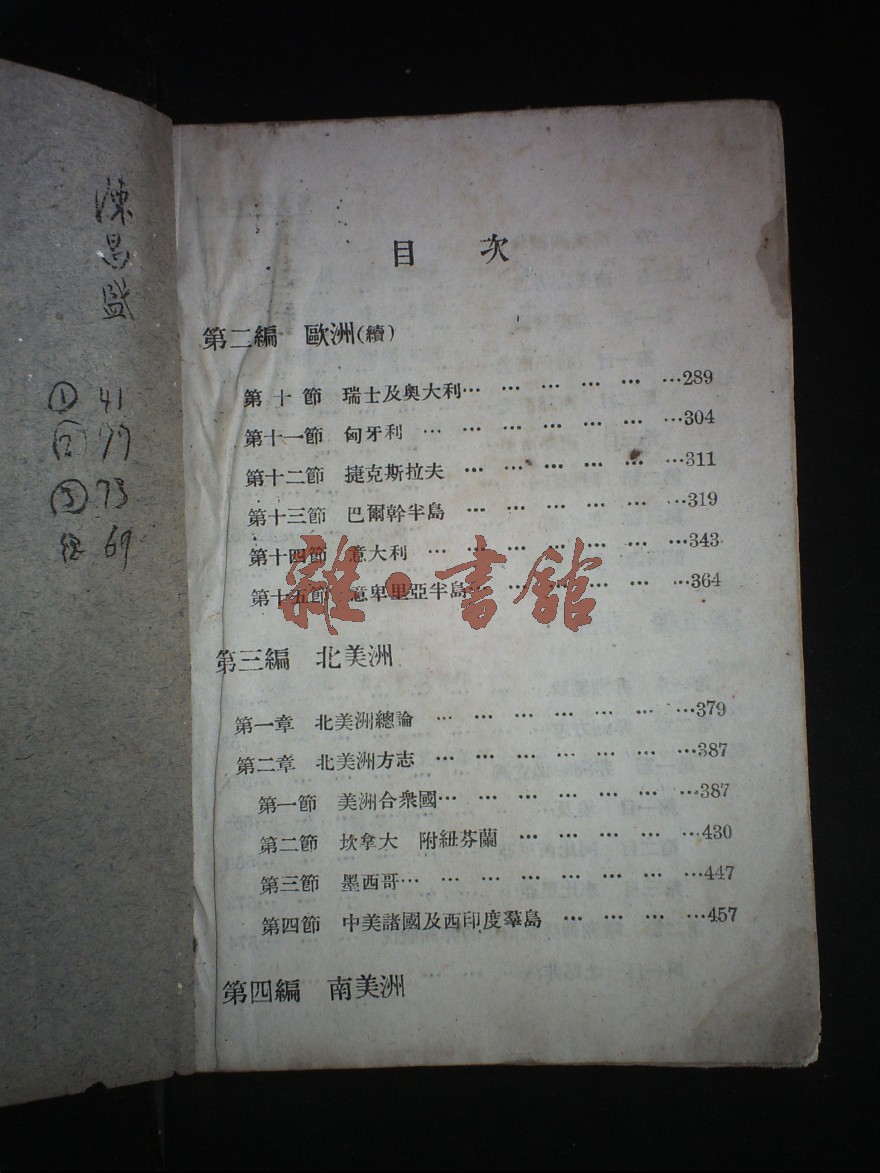 陳昌盛
① 41
② 99
③ 73
69
目 次
第二編 歐洲(續)
第十節 瑞士及奧大利… … … … … …289
第十一節 匈牙利 … … … … … … …304
第十二節 捷克斯拉夫 … … … … … …311
第十三節 巴爾幹半島 … … … … … …319
第十四節 意大利 … … … … … … …343
第十五節 意卑里亞半島… … … … … …364
雜·書館
第三編 北美洲
第一章 北美洲總論 … … … … … … …379
第二章 北美洲方志 … … … … … … …387
第一節 美洲合衆國… … … … … … …387
第二節 坎拿大 附紐芬蘭 … … … … …430
第三節 墨西哥… … … … … … … …447
第四節 中美諸國及西印度羣島 … … … …457
第四編 南美洲